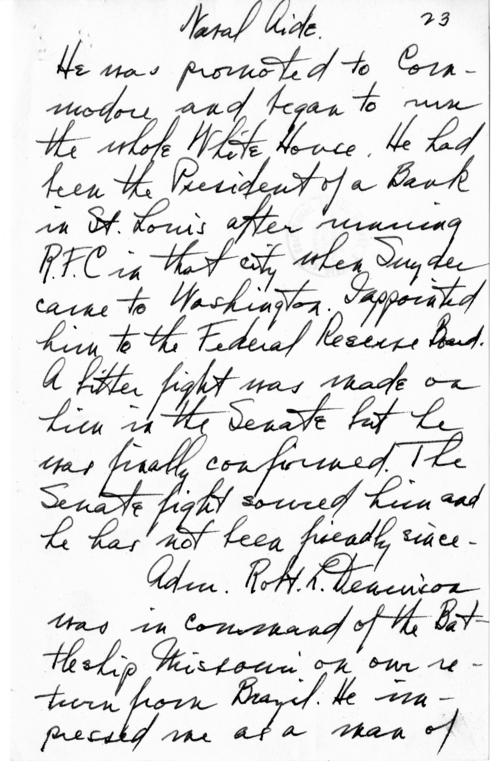 Naval Aide. 23
He was promoted to Com-
modore and began to run
the whole White House. He had
been the President of a Bank
in St. Louis after running
R.F.C in that city when Snyder
came to Washington. I appointed
him to the Federal Reserve Board.
A bitter fight was made on
him in the Senate but he
was finally confirmed. The
Senate fight soured him and
he has not been friendly since-
Adm. Robt. L. Dennison
was in command of the Bat-
tleship Missouri on our re-
turn from Brazil. He im-
pressed me as a man of